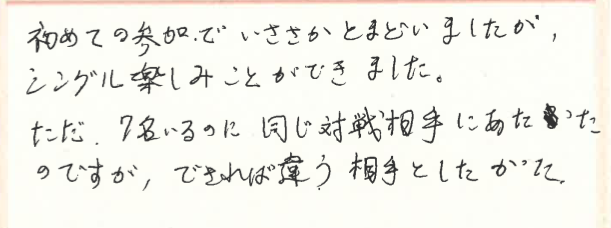 初めての参加でいささかとまどいましたが,
シングル楽しみことができました。
ただ、7名いるのに同じ対戦相手にあたった
のですが, できれば違う相手としたかった.